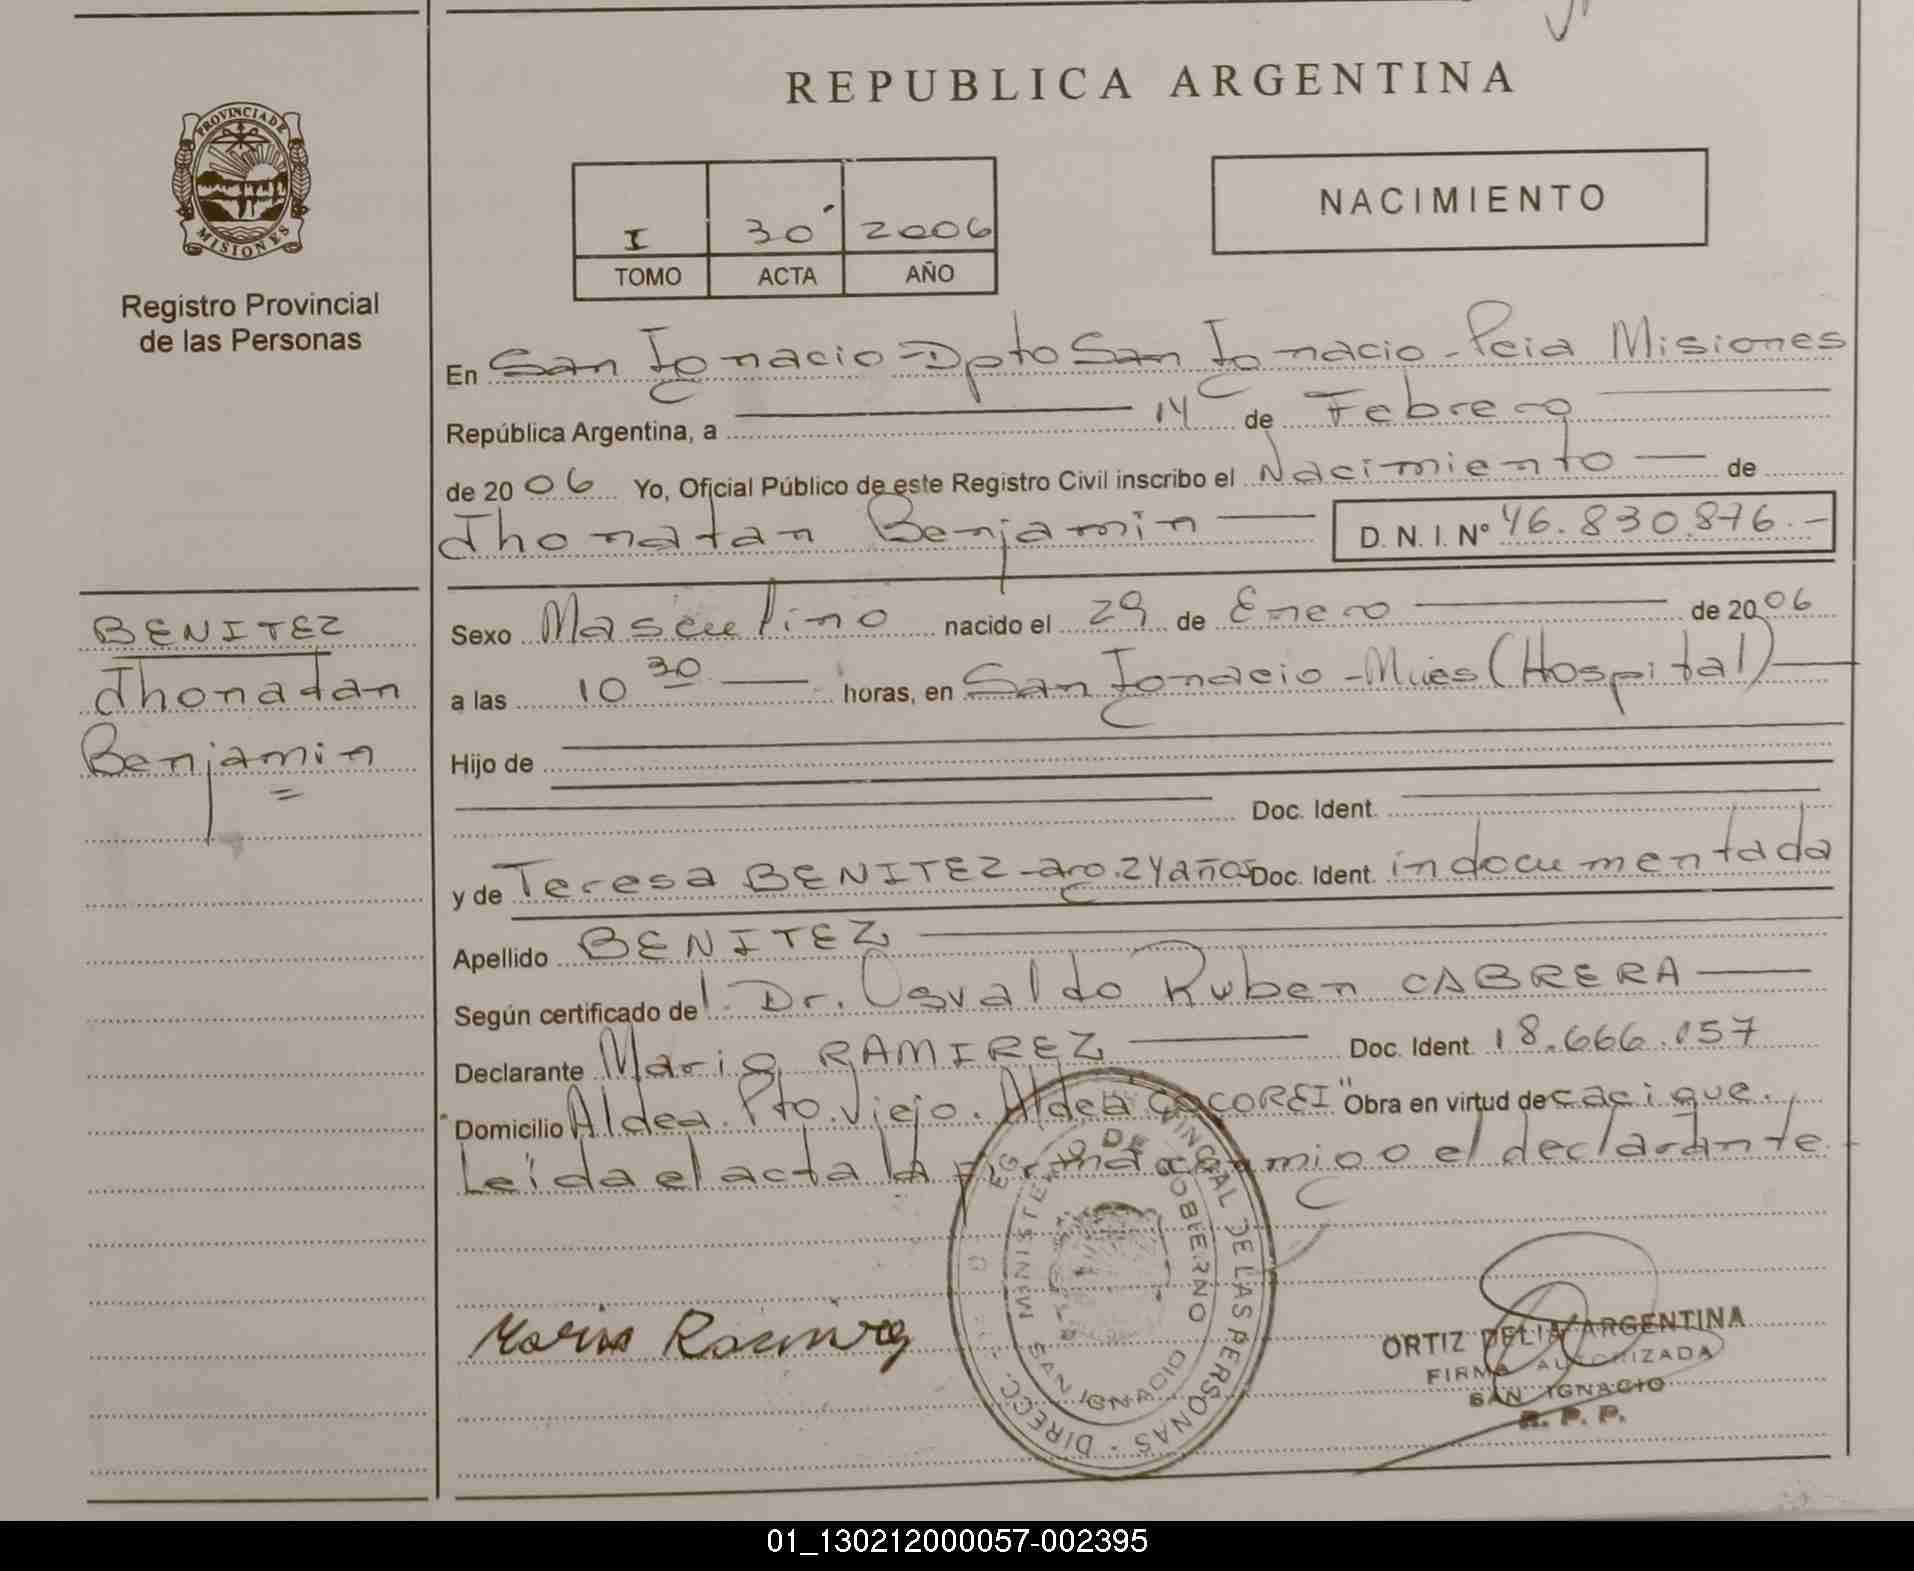 REPUBLICA ARGENTINA
PROVINCIA DE
MISIONES
Registro Provincial
de las Personas
NACIMIENTO
I 30 2006
TOMO ACTA AÑO
En San Ignacio - Dpto San Ignacio - Pcia Misiones
República Argentina, a 14 de Febrero
de 2006 Yo, Oficial Público de este Registro Civil inscribo el Nacimiento de
Jhonatan Benjamin D. N. I. Nº 46.830.876.-
BENITEZ
Jhonatan
Benjamin
Sexo Masculino nacido el 29 de Enero de 2006
a las 10 30 horas, en San Ignacio - Mnes (Hospital)
Hijo de
Doc. Ident.
y de Teresa BENITEZ - arg. 24 años Doc. Ident. indocumentada
Apellido BENITEZ
Según certificado del Dr. Osvaldo Ruben CABRERA
Declarante Mario RAMIREZ Doc. Ident. 18.666.157
Domicilio Aldea Pto. Viejo. Aldea Obra en virtud de cacique.
Leída el acta la firma conmigo el declarante
DIRECC. PROVINCIAL DE LAS PERSONAS
MINISTERIO DE GOBIERNO
SAN IGNACIO
ORTIZ DELIA ARGENTINA
FIRMA AUTORIZADA
SAN IGNACIO
R. P. P.
01_130212000057-002395